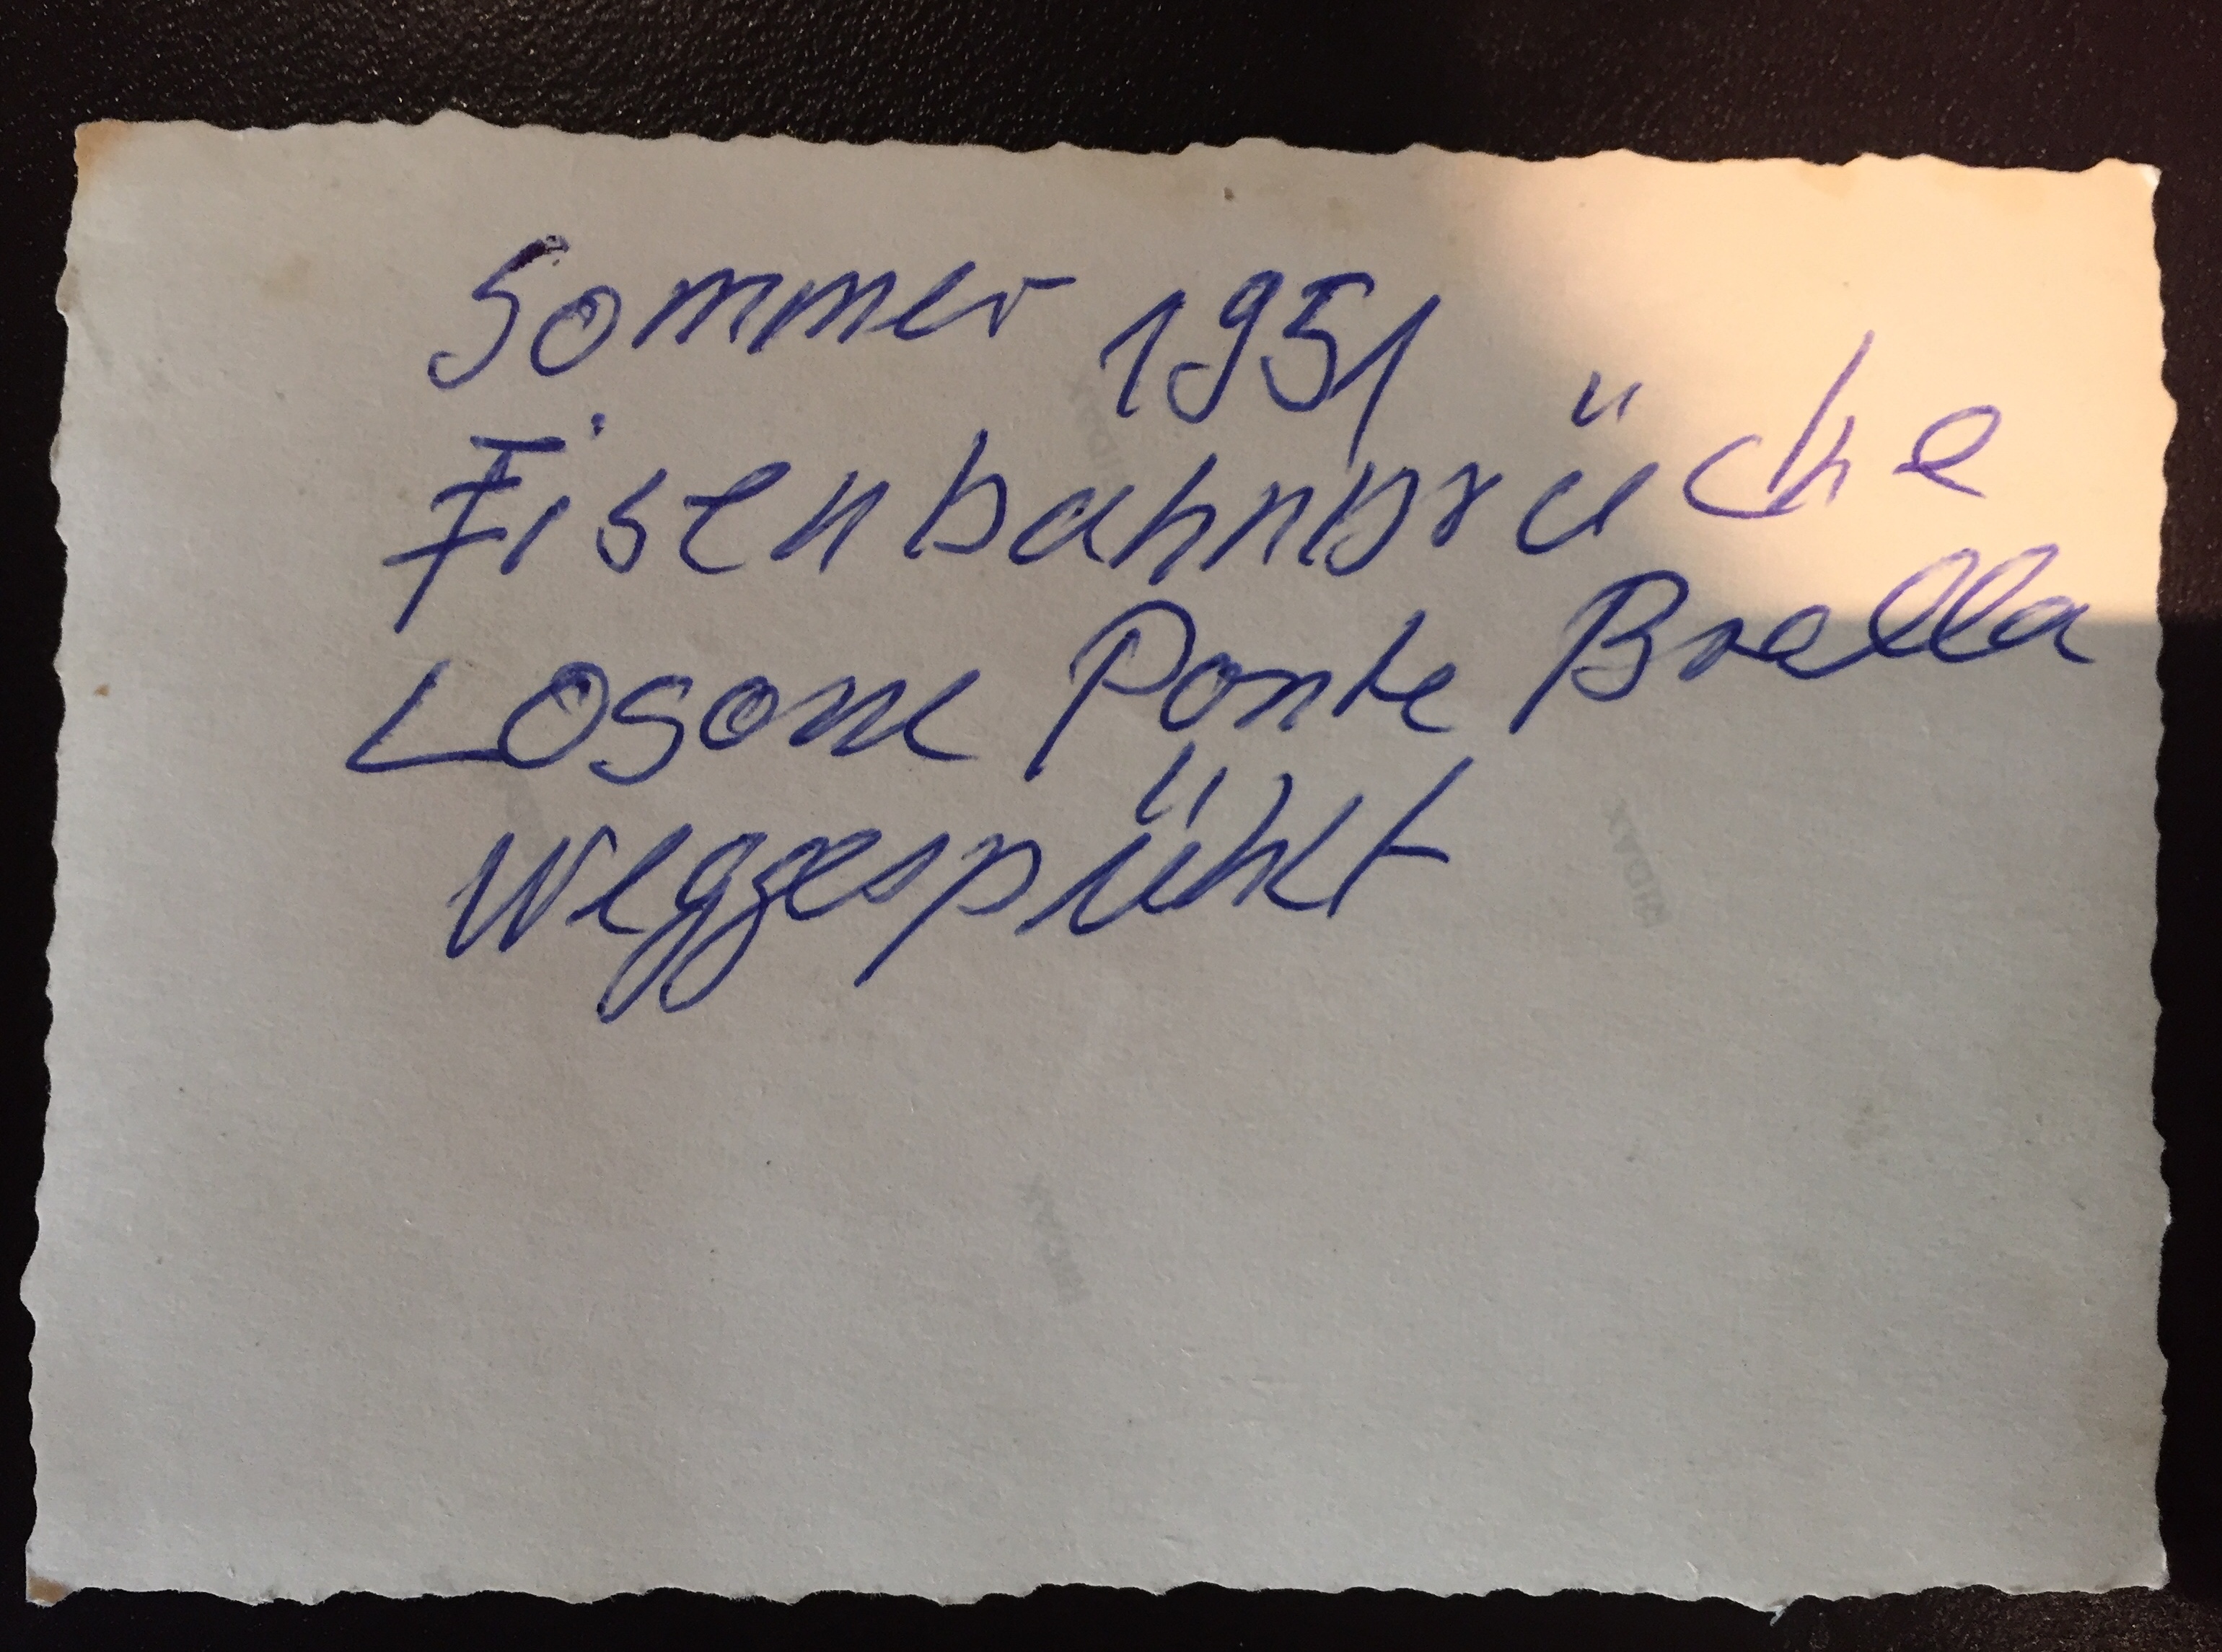 Sommer 1951
Eisenbahnbrücke
Losone Ponte Brella
weggespühlt